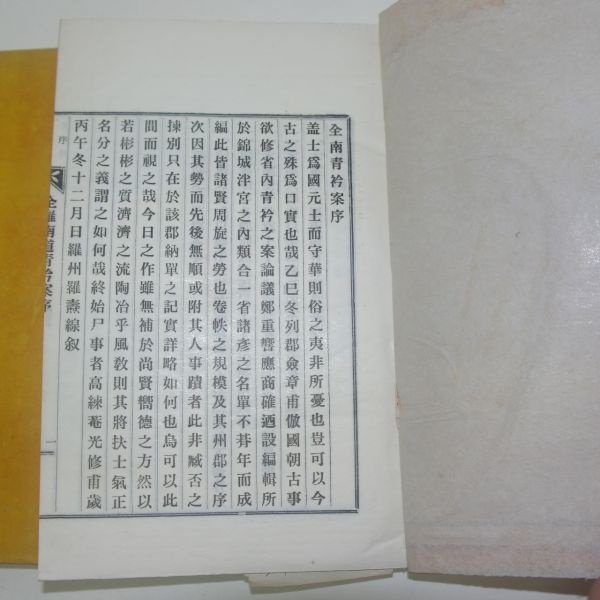 全南青衿案序
盖士爲國元士而守華則俗之夷非所憂也豈可以今
古之殊爲口實也哉乙巳冬列郡僉章甫倣國朝古事
欲修省內青衿之案論議鄭重響應商確迺設編輯所
於錦城泮宮之內類合一省諸彦之名單不朞年而成
編此皆諸賢周旋之勞也卷帙之規模及其州郡之序
次因其勢而先後無順或附其人事蹟者此非臧否之
揀別只在於該郡納單之記實詳略如何也烏可以此
間而視之哉今日之作雖無補於尚賢嚮德之方然以
若彬彬之質濟濟之流陶冶乎風敎則其將扶士氣正
名分之義謂之如何哉終始尸事者高練菴光修甫歲
丙午冬十二月日羅州羅燾線叙
序
全羅南道青衿案序
一